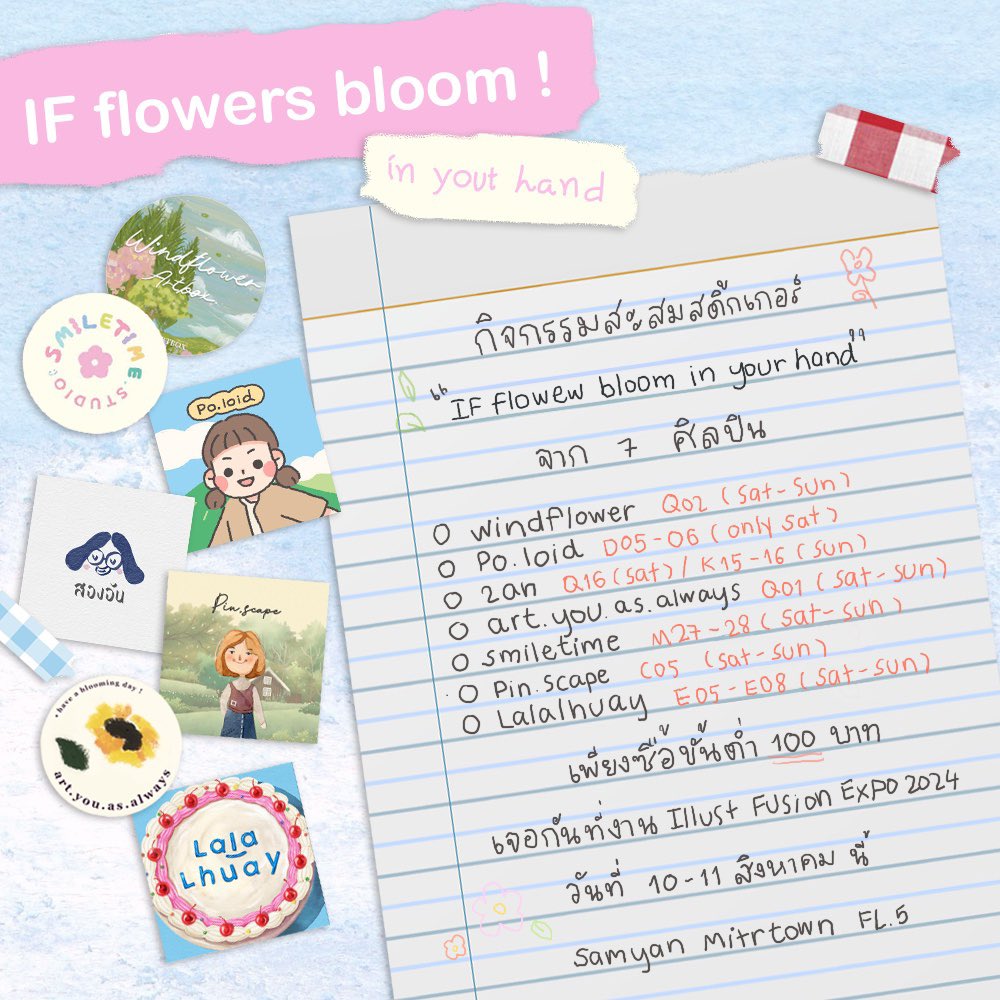 IF flowers bloom !
in yout hand
Windflower
Artbox
SMILETIME.STUDIO
Po.loid
สองอัน
Pin.scape
• have a blooming day !
art.you.as.always
Lala
Lhuay
กิจกรรมสะสมสติ๊กเกอร์
"IF flowew bloom in your hand"
จาก 7 ศิลปิน
windflower Q02 (sat-sun)
Po.loid D05-06 (only sat)
2an Q16 (sat) / K15-16 (sun)
art.you.as.always Q01 (sat-sun)
smiletime M27-28 (sat-sun)
Pin.scape C05 (sat-sun)
Lalalhuay E05-E08 (sat-sun)
เพียงซื้อขั้นต่ำ 100 บาท
เจอกันที่งาน Illust Fusion Expo 2024
วันที่ 10-11 สิงหาคม นี้
Samyan Mitrtown FL.5